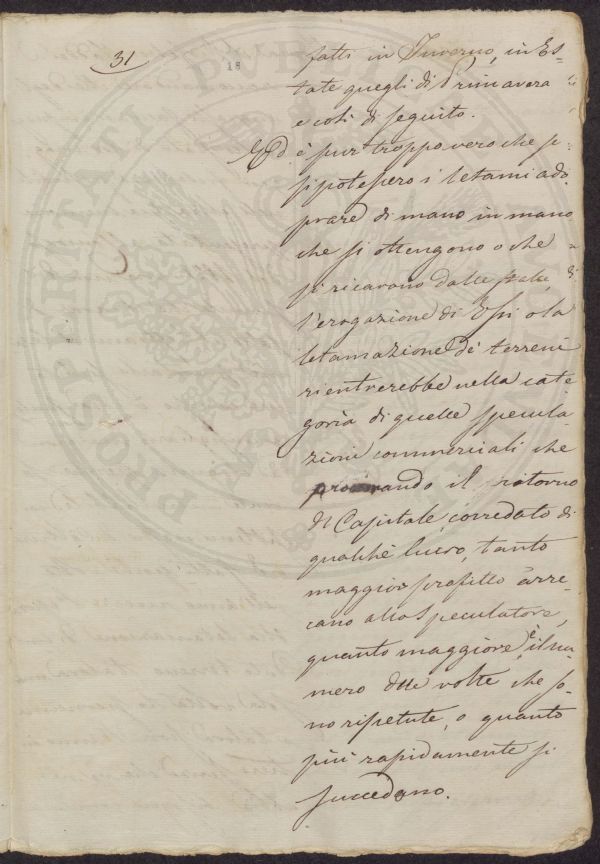 31
18
fatti in Inverno, in Es-
tate quegli di Primavera
e così di seguito.
Ed è pur troppo vero che se
si potessero i letami ado
prare di mano in mano
che si ottengono o che
si ricavano dalle stalle,
l'erogazione di Essi o la
letamazione de' terreni
rientrerebbe nella cate
goria di quelle specula-
zioni commerciali che
procurando il ritorno
del Capitale corredato di
qualche lucro, tanto
maggior profitto arre-
cano allo Speculatore,
quanto maggiore è il nu-
mero delle volte che so-
no ripetute, o quanto
più rapidamente si
succedono.
PROSPERITATI PVBLICAE